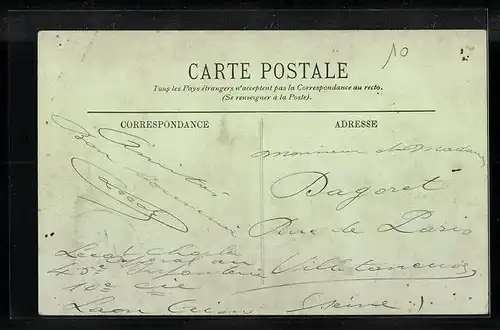 10
CARTE POSTALE
Tous les Pays étrangers n'acceptent pas la Correspondance au recto.
(Se renseigner à la Poste).
CORRESPONDANCE
ADRESSE
Amitiés
Bon souvenir
Monsieur et Madame
Dagoret
Rue de Paris
Villetaneuse
(Seine)
Caporal au
45e Infanterie
10e Cie
Laon Aisne